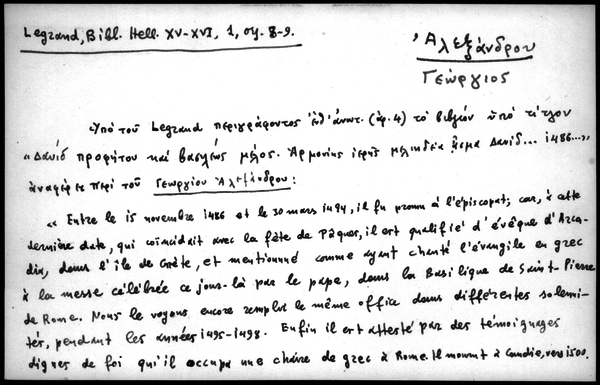 Legrand, Bibl. Hell. XV-XVI, 1, σλ. 8-9.
Ἀλεξάνδρου
Γεώργιος
Ὑπὸ τοῦ Legrand περιγράφοντος ἐνθ' ἀνωτ. (ἀρ. 4) τὸ βιβλίον ὑπὸ τίτλον
"Δαυὶδ προφήτου καὶ βασιλέως μέλος. Ἁρμονίης ἱερῆς μελιηδέα Δαυὶδ... 1486...",
ἀναφέρεται περὶ τοῦ Γεωργίου Ἀλεξάνδρου:
" Entre le 15 novembre 1486 et le 30 mars 1494, il fu promu à l'épiscopat; car, à cette
dernière date, qui coïncidait avec la fête de Pâques, il est qualifié d'évêque d'Arca-
dia, dans l'île de Crète, et mentionné comme ayant chanté l'évangile en grec
à la messe célébrée ce jour-là par le pape, dans la Basilique de Saint-Pierre
de Rome. Nous le voyons encore remplir le même office dans différentes solenni-
tés, pendant les années 1495-1498. Enfin il est attesté par des témoignages
dignes de foi qu'il occupa une chaire de grec à Rome. Il mourut à Candie, vers 1500.